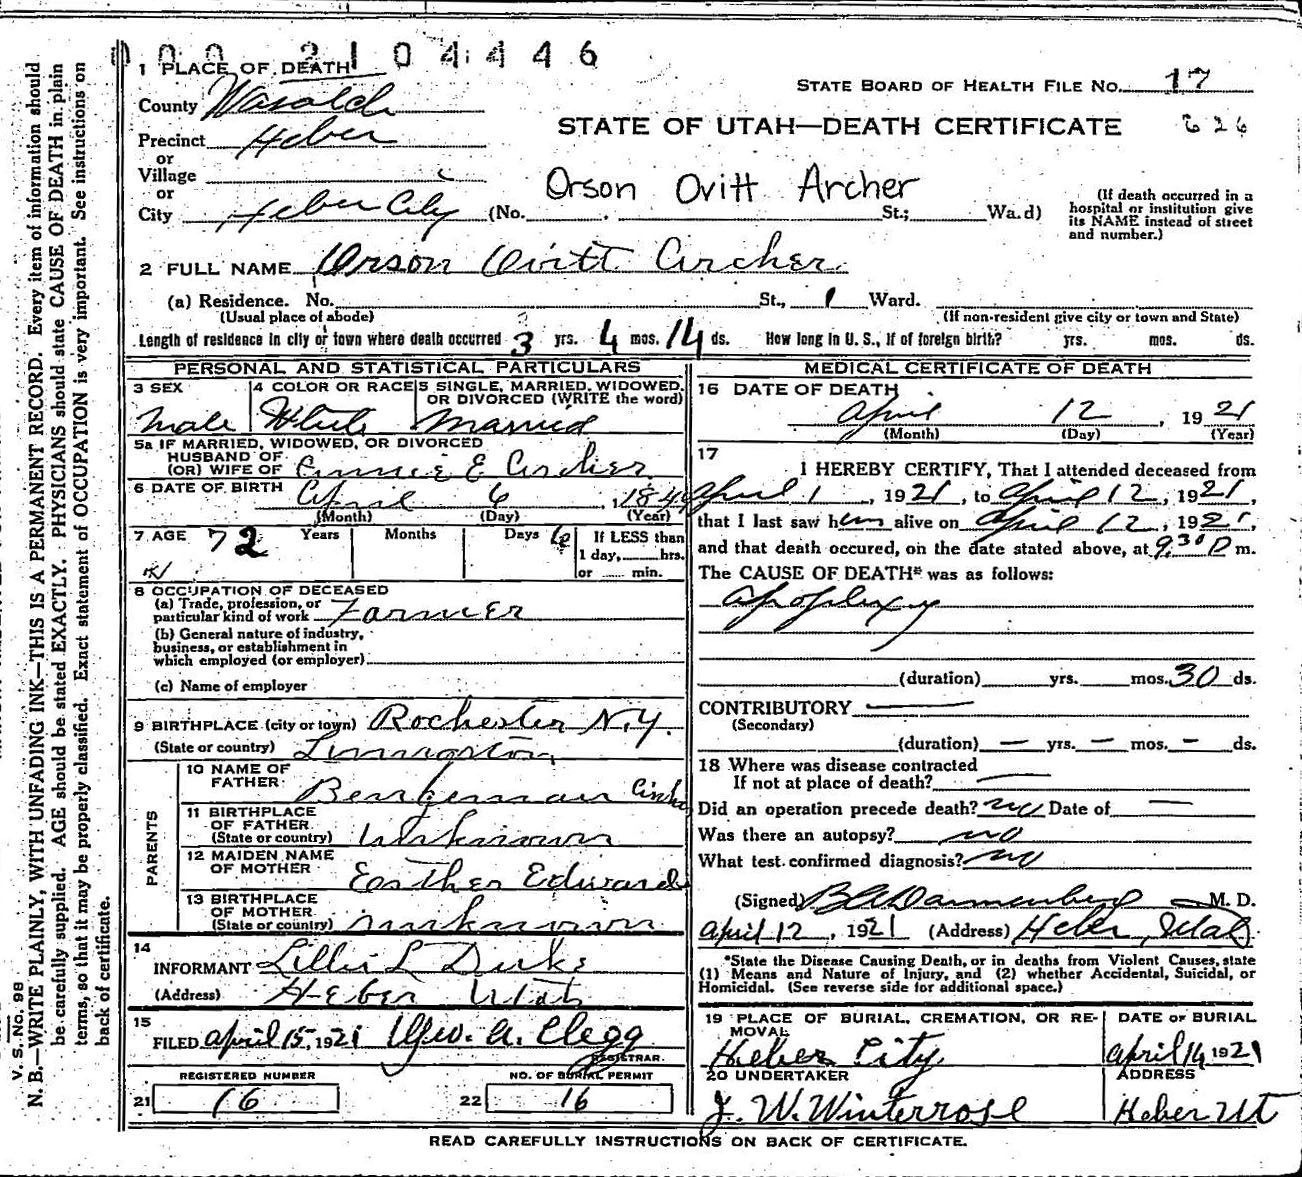 0 0 0 2 1 0 4 4 4 6
1 PLACE OF DEATH
STATE BOARD OF HEALTH FILE No. 17
County Wasatch
STATE OF UTAH—DEATH CERTIFICATE 626
Precinct Heber
or
Village
or
Orson Ovitt Archer
City Heber City (No. St.; Wa.d)
(If death occurred in a
hospital or institution give
its NAME instead of street
and number.)
2 FULL NAME Orson Ovitt Archer
(a) Residence. No. St., 1 Ward.
(Usual place of abode) (If non-resident give city or town and State)
Length of residence in city or town where death occurred 3 yrs. 4 mos. 14 ds. How long in U. S., if of foreign birth? yrs. mos. ds.
PERSONAL AND STATISTICAL PARTICULARS
3 SEX
Male
4 COLOR OR RACE
White
5 SINGLE, MARRIED, WIDOWED,
OR DIVORCED (WRITE the word)
Married
5a IF MARRIED, WIDOWED, OR DIVORCED
HUSBAND OF
(OR) WIFE OF Annie E Archer
6 DATE OF BIRTH April 6, 1849
(Month) (Day) (Year)
7 AGE 72 Years Months Days 6
If LESS than
1 day, hrs.
or min.
8 OCCUPATION OF DECEASED
(a) Trade, profession, or
particular kind of work Farmer
(b) General nature of industry,
business, or establishment in
which employed (or employer)
(c) Name of employer
9 BIRTHPLACE (city or town) Rochester N.Y.
(State or country) Livingston
PARENTS
10 NAME OF
FATHER Archer
11 BIRTHPLACE
OF FATHER
(State or country) Unknown
12 MAIDEN NAME
OF MOTHER Easther Edwards
13 BIRTHPLACE
OF MOTHER
(State or country) unknown
14
INFORMANT Lillie L Duke
(Address) Heber Utah
15
FILED April 15, 1921 Geo. A. Clegg
REGISTRAR.
REGISTERED NUMBER
21 16
NO. OF BURIAL PERMIT
22 16
MEDICAL CERTIFICATE OF DEATH
16 DATE OF DEATH
April 12, 1921
(Month) (Day) (Year)
17
I HEREBY CERTIFY, That I attended deceased from
April 1, 1921, to April 12, 1921,
that I last saw him alive on April 12, 1921,
and that death occured, on the date stated above, at 9:30 P m.
The CAUSE OF DEATH* was as follows:
Apoplexy
(duration) yrs. mos. 30 ds.
CONTRIBUTORY —
(Secondary)
(duration) — yrs. — mos. — ds.
18 Where was disease contracted
If not at place of death? —
Did an operation precede death? no Date of —
Was there an autopsy? no
What test confirmed diagnosis? no
(Signed) Dannenberg M. D.
April 12, 1921 (Address) Heber, Utah
*State the Disease Causing Death, or in deaths from Violent Causes, state
(1) Means and Nature of Injury, and (2) whether Accidental, Suicidal, or
Homicidal. (See reverse side for additional space.)
19 PLACE OF BURIAL, CREMATION, OR RE-
MOVAL
Heber City
DATE OF BURIAL
April 14 1921
20 UNDERTAKER
J. W. Winterrose
ADDRESS
Heber Ut
READ CAREFULLY INSTRUCTIONS ON BACK OF CERTIFICATE.
V. S. No. 98
N. B.—WRITE PLAINLY, WITH UNFADING INK—THIS IS A PERMANENT RECORD. Every item of information should
be carefully supplied. AGE should be stated EXACTLY. PHYSICIANS should state CAUSE OF DEATH in plain
terms, so that it may be properly classified. Exact statement of OCCUPATION is very important. See instructions on
back of certificate.